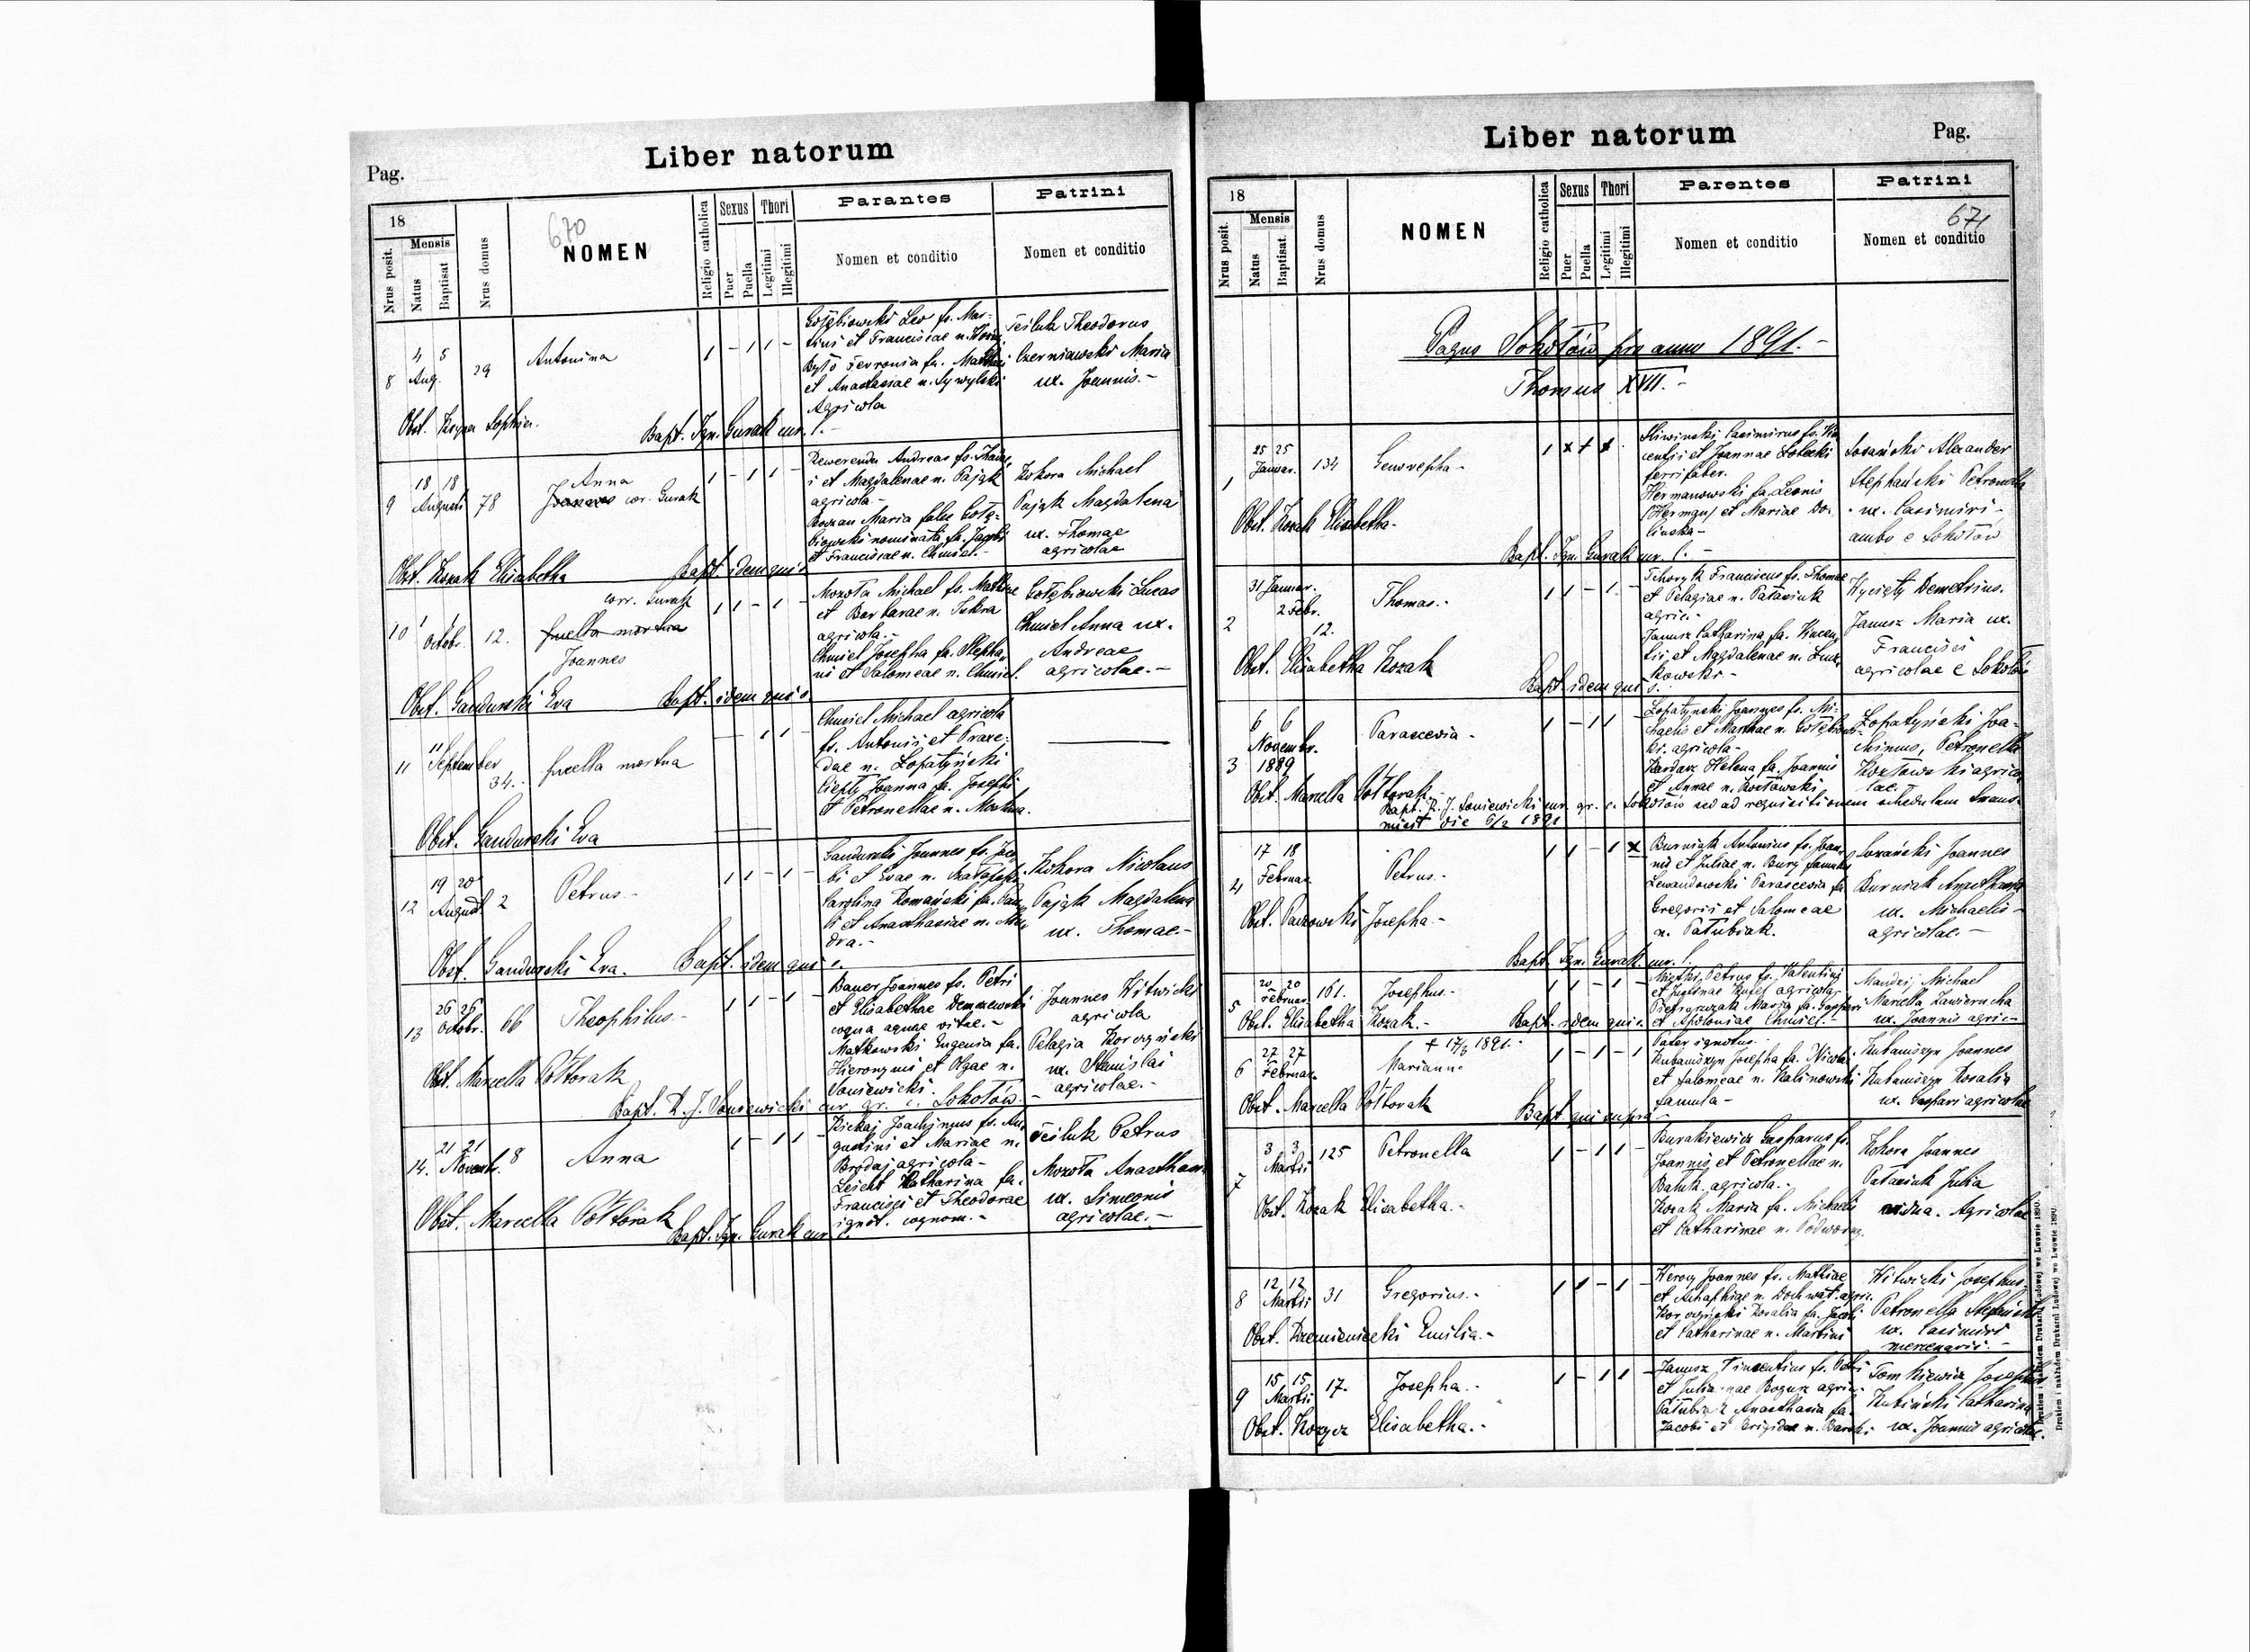 Liber natorum
Pag.
18
Nrus posit.
Mensis
Natus
Baptisat
Nrus domus
670
NOMEN
Religio catholica
Sexus
Puer
Puella
Thori
Legitimi
Illegitimi
Parantes
Nomen et conditio
Patrini
Nomen et conditio
8
4 5
Aug.
29
Antonina
Gołębiowski Leo fs. Mar-
tini et Franciscae n.
Fevronia fa.
et Anastasiae n.
Agricola
Theodorus
Czerniawski Maria
ux. Joannis.-
Obst. Sophia.
Bapt. Ign. Gurak cur. l.-
9
18 18
Augusti
78
Anna
Joannes cor. Gurak
Andreas fs.
i et Magdalenae n. Pająk
agricola.-
Maria false Gołę-
biowski nominata fa. Jacobi
et Franciscae n. Chmiel.-
Kokora Michael
Pająk Magdalena
ux. Thomae
agricolae
Obst. Kozak Elisabetha
Bapt. idem qui s.
10
1
Octobr.
12.
corr. Gurak
puella mortua
Joannes
Mozoła Michael fs. Mathiae
et Barbarae n.
agricola.-
Chmiel Josepha fa. Stepha-
ni et Salomeae n. Chmiel.
Gołębiowski Lucas
Chmiel Anna ux.
Andreae
agricolae.-
Obst. Gandurski Eva
Bapt. idem qui s.
11
11
September
34.-
puella mortua
Chmiel Michael agricola
fs. Antonii et Praxe-
dae n. Łopatyński
Joanna fa. Josephi
et Petronellae n.
Obst. Gandurski Eva
12
19 20
August
2
Petrus.-
Gandurski Joannes fs. Jaco-
bi et Evae n.
Carolina Romański fa. Pau-
li et Anasthasiae n.
dra.-
Kokora Nicolaus
Pająk Magdalena
ux. Thomae.-
Obst. Gandurski Eva.
Bapt. idem qui s.
13
26 26
Octobr.
66
Theophilus.-
Bauer Joannes fs. Petri
et Elisabethae
aquae vitae.-
Matkowski Eugenia fa.
Hieronymi et Olgae n.
Soniewicki.
Joannes Witwicki
agricola
Pelagia
ux. Stanislai
agricolae.-
Obst. Marcella Półtorak
Bapt. R. J. Soniewicki cur. gr. c. Sokołów.-
14.
21 21
Novembr.
8
Anna
Joachimus fs. Au-
gustini et Mariae n.
agricola-
Catharina fa.
Francisci et Theodorae
ignot. cognom.-
Petrus
Mozoła Anasthasia
ux. Simeonis
agricolae.-
Obst. Marcella Półtorak
Bapt. Ign. Gurak cur. l.
Liber natorum
Pag.
18
Nrus posit.
Mensis
Natus
Baptisat.
Nrus domus
NOMEN
Religio catholica
Sexus
Puer
Puella
Thori
Legitimi
Illegitimi
Parentes
Nomen et conditio
Patrini
671
Nomen et conditio
Pagus Sokołów pro anno 1891.-
Thomus XVII.-
1
25 25
Januar.
134
Genovepha-
Śliwinski Casimirus fs. Vin-
centii et Joannae
ferrifaber.
Hermanowski fa. Leonis
(Herman) et Mariae Do-
linska-
Sozański Alexander
Stephański Petronella
ux. Casimiri-
ambo e Sokołów
Obst. Kozak Elisabetha-
Bapt. Ign. Gurak cur. l.-
2
31 Januar.
2 Febr.
12.
Thomas.-
Tchoryk Franciscus fs. Thomae
et Pelagiae n.
agric.-
Janusz Catharina fa. Vincen-
tii et Magdalenae n.
kowski-
Wycięty Demetrius.
Janusz Maria ux.
Francisci
agricolae e Sokołów
Obst. Elisabetha Kozak
Bapt. idem qui s.
3
6 6
Novembr.
1889
Parascevia-
Łopatyński Joannes fs. Mi-
chaelis et Marthae n. Gołębiows-
ki. agricola-
Helena fa. Joannis
et Annae n. Kozłowski
Łopatyński Joa-
chimus, Petronella
Kozłowski agrico-
lae.
Obst. Marcella Półtorak.-
Bapt. R. J. Soniewicki cur. gr. c. Sokołów sed ad requisitionem schedulam trans-
misit die 6/2 1891
4
17 18
Februar
Petrus.-
Burniak Antonius fs. Joan-
nis et Juliae n. Bury famulus
Lewandowski Parascevia fa.
Gregorii et Salomeae
n. Patubiak.
Sozański Joannes
Burniak Anasthasia
ux. Michaelis-
agricolae.-
Obst. Josepha.-
Bapt. Ign. Gurak cur. l.
5
20 20
Februar
161.
Josephus.-
Petrus fs. Valentini
agricola
Maria fa. Gaspari
et Apoloniae Chmiel.-
Michael
Marcella Zawierucha
ux. Joannis agric-
Obst. Elisabetha Kozak.-
Bapt. idem qui s.
6
27 27
Februar.
+ 17/3 1891.-
Marianna
Pater ignotus.
Josepha fa. Nicolai
et Salomeae n. Kalinowski
famula-
Joannes
Rosalia
ux. Gaspari agricolae
Obst. Marcella Półtorak
Bapt. qui supra-
7
3 3
Martii
125
Petronella
Burakiewicz Gasparus fs.
Joannis et Petronellae n.
agricola.-
Kozak Maria fa. Michaelis
et Catharinae n.
Kokora Joannes
Julia
vidua. Agricolae
Obst. Kozak Elisabetha.-
8
12 12
Martii
31
Gregorius.-
Joannes fs. Mathiae
Rosalia fa. Jacobi
et Catharinae n. Martini
Witwicki Josephus.
Petronella
ux. Casimiri
mercenarii.-
Obst. Emilia.-
9
15 15
Martii
17.
Josepha.-
Janusz Vincentius fs. Petri
et Julianae
Anasthasia fa.
Jacobi et Brigidae n.
Tomkiewicz Josephus
Catharina
ux. Joannis agricolae.
Obst. Elisabetha.-
Drukiem i nakładem Drukarni Ludowej we Lwowie 1890.
Drukiem i nakładem Drukarni Ludowej we Lwowie 1890.